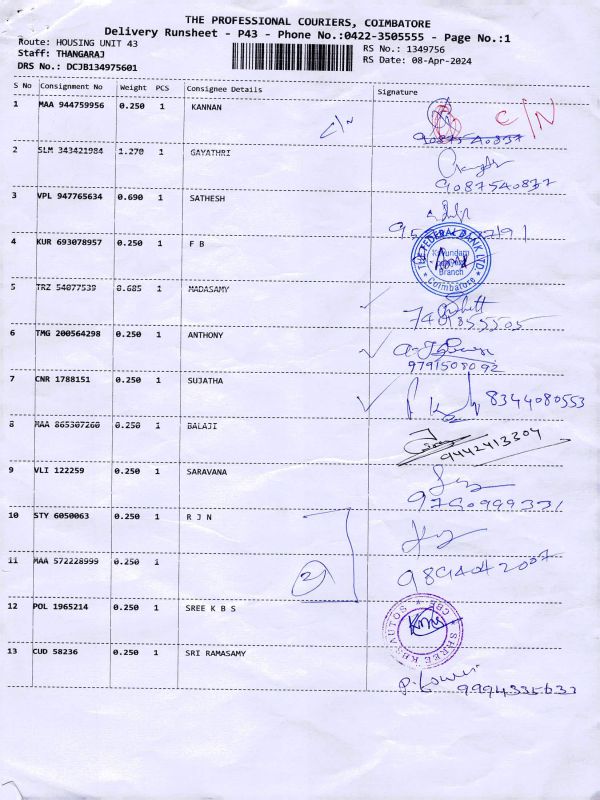 THE PROFESSIONAL COURIERS, COIMBATORE
Delivery Runsheet - P43 - Phone No.:0422-3505555 - Page No.:1
Route: HOUSING UNIT 43
Staff: THANGARAJ
DRS No.: DCJB134975601
RS No.: 1349756
RS Date: 08-Apr-2024
S No Consignment No Weight PCS Consignee Details Signature
1 MAA 944759956 0.250 1 KANNAN C/N C/N
9087540837
2 SLM 343421984 1.270 1 GAYATHRI
9087540837
3 VPL 947765634 0.690 1 SATHESH
4 KUR 693078957 0.250 1 F B
THE FEDERAL BANK LTD
Branch
Coimbatore
5 TRZ 54077539 0.685 1 MADASAMY
7401855505
6 TMG 200564298 0.250 1 ANTHONY
9791508092
7 CNR 1788151 0.250 1 SUJATHA 8344080553
8 MAA 865307260 0.250 1 BALAJI
9442413304
9 VLI 122259 0.250 1 SARAVANA
9790999331
10 STY 6050063 0.250 1 R J N
11 MAA 572228999 0.250 1 2
9894042007
12 POL 1965214 0.250 1 SREE K B S
SHREE KBS AUTOS CBE
13 CUD 58236 0.250 1 SRI RAMASAMY
9994335633